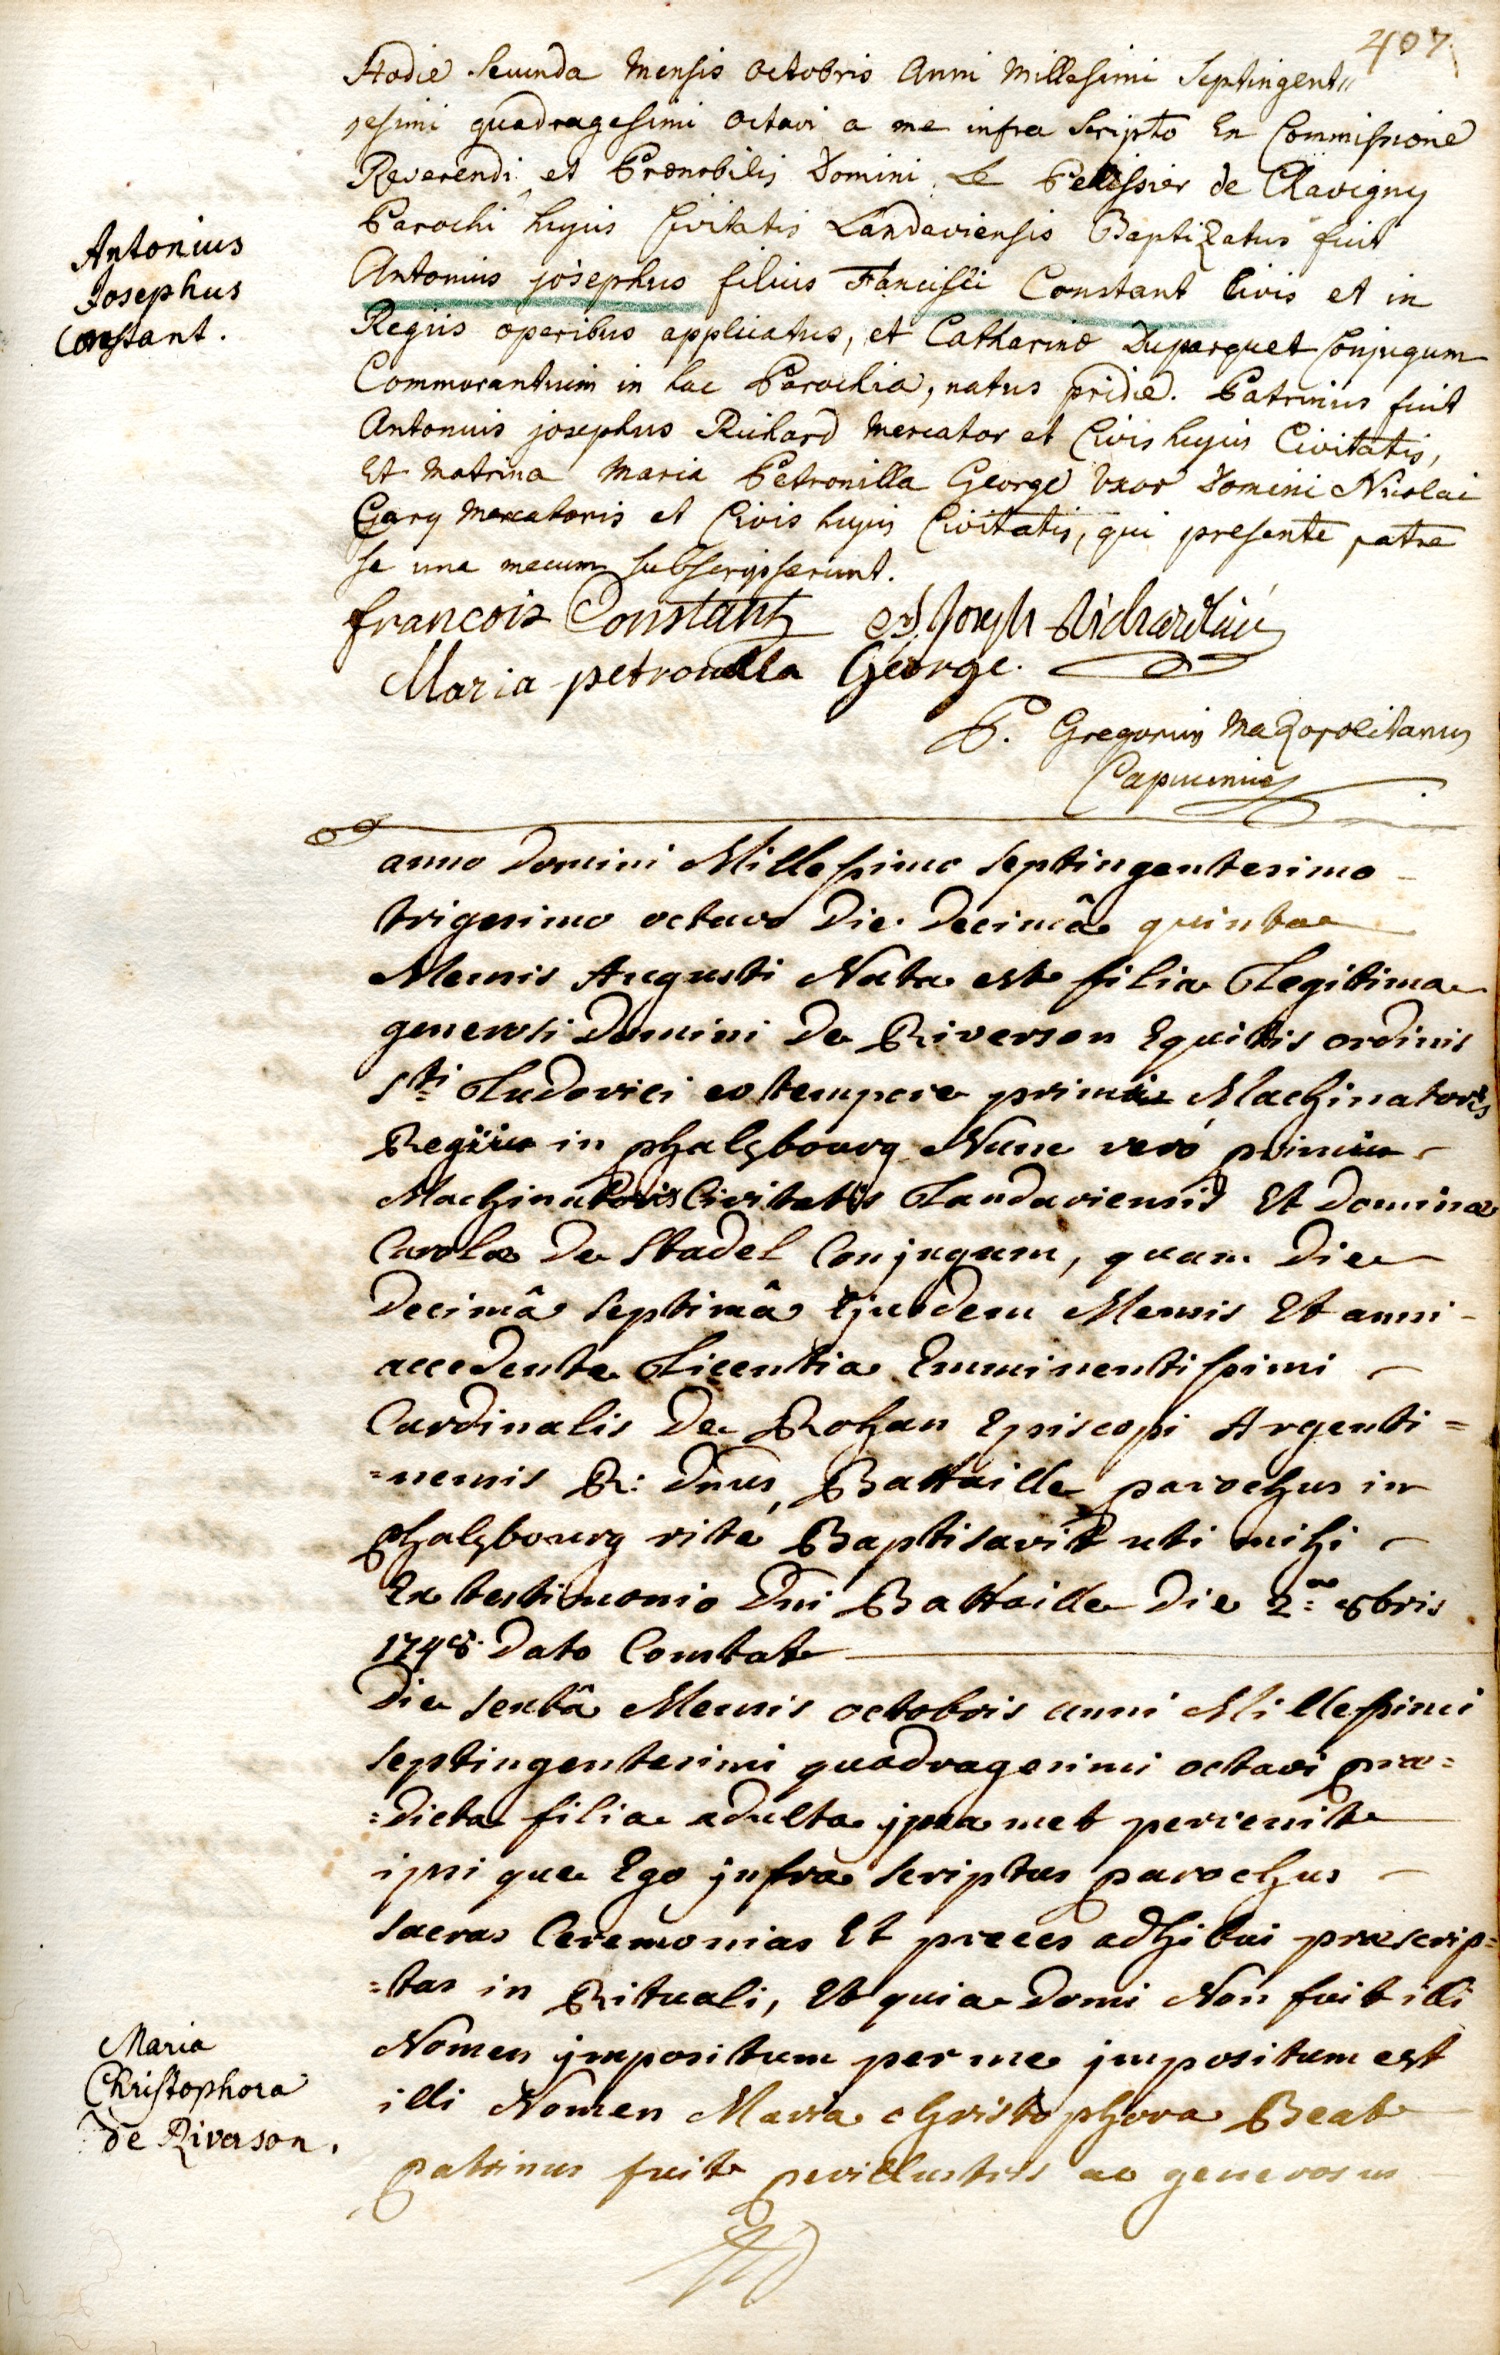 407
Hodie Secunda Mensis Octobris Anni Millesimi Septingent„
gesimi quadragesimi Octavi a me infra Scripto En Commissione
Reverendi et Prænobilis Domini Le Pelissier de Clavigny
Parochi hujus Civitatis Landaviensis BaptiZatus fuit
Antonius josephus filius Francisci Constant Civis et in
Regiis operibus applicatus, et Catharinæ Duparquet Conjugum
Commorantium in hac Parochia, natus pridie. Patrinus fuit
Antonius josephus Richard Mercator et Civis hujus Civitatis,
Et Matrina Maria Petronilla George Uxor Domini Nicolai
Gary Mercatoris et Civis hujus Civitatis, qui presente patre
se una mecum subscripserunt.
Antonius
Josephus
Constant.
francois Constant Joseph Richard
Maria petronella George.
P. Gregorius MaZopolitanus
Capucinus
anno Domini Millesimo septingentesimo
trigesimo octavo Die Decimâ quinta
Mensis Augusti Nata est filia Legitima
generosi Domini De Riverson Equitis ordinis
sti Ludovici eo tempore primi Machinatoris
Regii in phalzbourg Nunc veró primi
Machinatoris Civitatis Landaviensis Et Dominæ
Carolæ De Stadel Conjugum, quam Die
Decimâ septimâ Ejusdem Mensis Et anni
accedente Licentia Emminentissimi
Cardinalis De Rohan Episcopi Argenti=
=nensis R: Dnus Battaille parochus in
phalzbourg rité Baptisavit uti mihi
Ex testimonio Dni Battaille Die 2.a 8bris
1748. Dato Constat
Die sextâ Mensis octobris anni Millesimi
septingentesimi quadragesimi octavi præ=
=dicta filia adulta jpsamet pervenit
ipsique Ego jnfra scriptus parochus
sacras Ceremonias Et preces adhibui præscrip=
=tas in Rituali, Et quia Domi Non fuit illi
Nomen jmpositum per me jmpositum est
illi Nomen Maria christophora Beat
patrinus fuit perillustris ac generosus
Maria
Christophora
de Riverson.